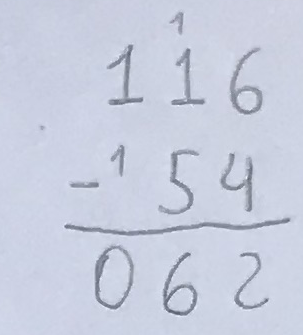 1
116
-¹54
062